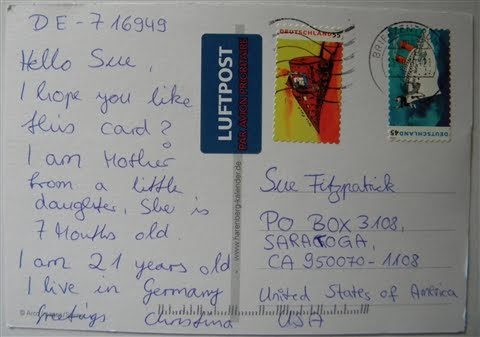 DE-716949
Hello Sue
I hope you like
this card?
I am Mother
from a little
daughter. She is
7 Months old.
I am 21 years old
I live in Germany
Greetings Christina
LUFTPOST
PAR AVION PRIORITAIRE
DEUTSCHLAND 55
BRIEF
DEUTSCHLAND 45
www.harenberg-kalender.de
Sue Fitzpatrick
PO BOX 3108,
SARATOGA,
CA 950070-1108
United States of America
USA